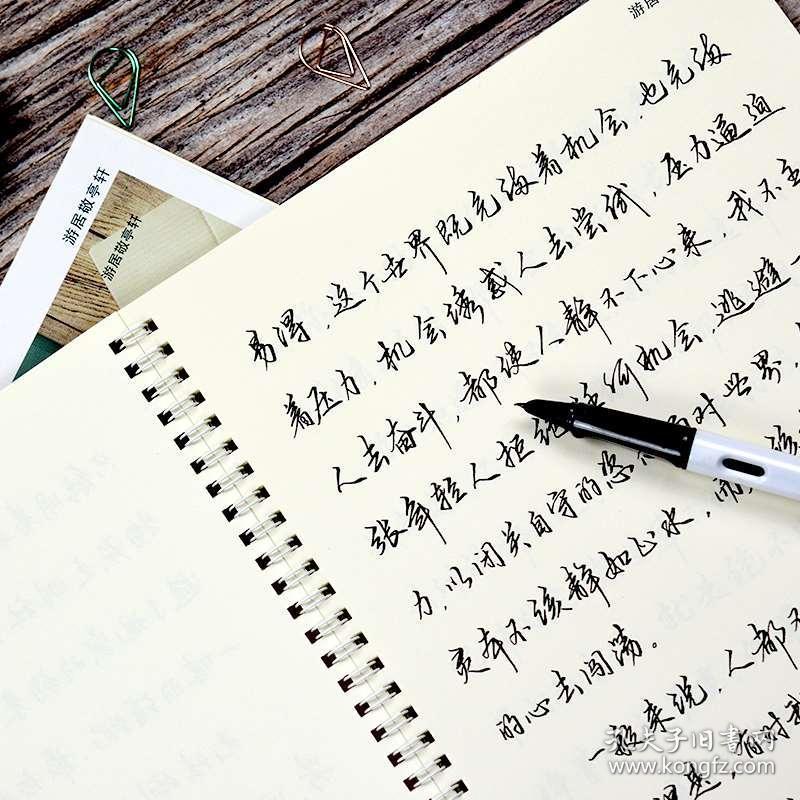 游居
游居敬亭轩
游居敬亭轩
易得，这个世界既充满着机会，也充满
着压力，机会诱惑人去尝试，压力逼迫
人去奋斗，都使人静不下心来，我不主
张年轻人拒绝任何机会，逃避一
力，以闭关自守的姿 面对世界，
灵本不该静如止水，而
的心去闯荡。
一般来说，人都不
有时
孔夫子旧书网
www.kongfz.com